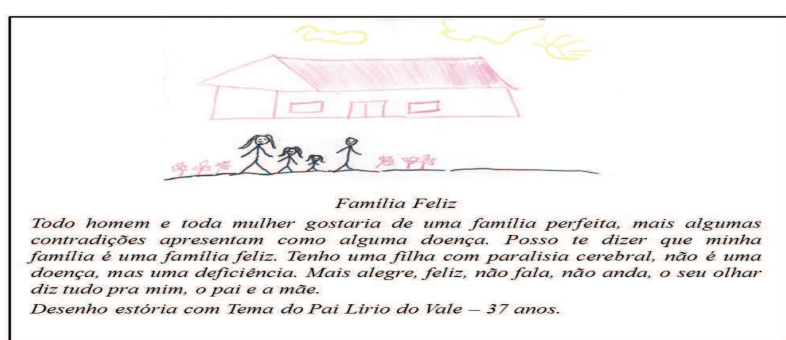 Família Feliz
Todo homem e toda mulher gostaria de uma família perfeita, mais algumas
contradições apresentam como alguma doença. Posso te dizer que minha
família é uma família feliz. Tenho uma filha com paralisia cerebral, não é uma
doença, mas uma deficiência. Mais alegre, feliz, não fala, não anda, o seu olhar
diz tudo pra mim, o pai e a mãe.
Desenho estória com Tema do Pai Lírio do Vale – 37 anos.